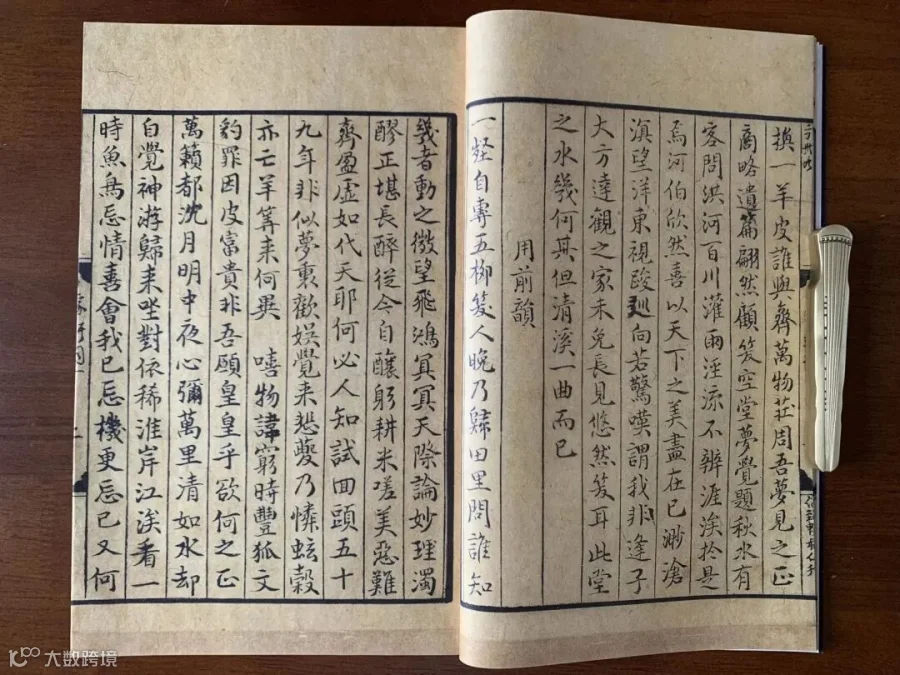 換一羊皮誰與齊萬物莊周吾夢見之正
商略遺篇翩然顧笑空堂夢覺題秋水有
客問洪河百川灌雨涇流不辨涯涘於是
焉河伯欣然喜以天下之美盡在己渺滄
溟望洋東視踆巡向若驚嘆謂我非逢子
大方達觀之家未免長見悠然笑耳此堂
之水幾何其但清溪一曲而已
用前韻
一壑自專五柳笑人晚乃歸田里問誰知
幾者動之微望飛鴻冥冥天際論妙理濁
醪正堪長醉從今自釀躬耕米嗟美惡難
齊盈虛如代天耶何必人知試回頭五十
九年非似夢裏歡娛覺来悲夔乃憐蚿穀
亦亡羊筭来何異 嘻物諱窮時豐狐文
豹罪因皮富貴非吾願皇皇乎欲何之正
萬籟都沈月明中夜心彌萬里清如水却
自覺神游歸来坐對依稀淮岸江涘看一
時魚鳥忘情喜會我已忘機更忘己又何
大数跨境